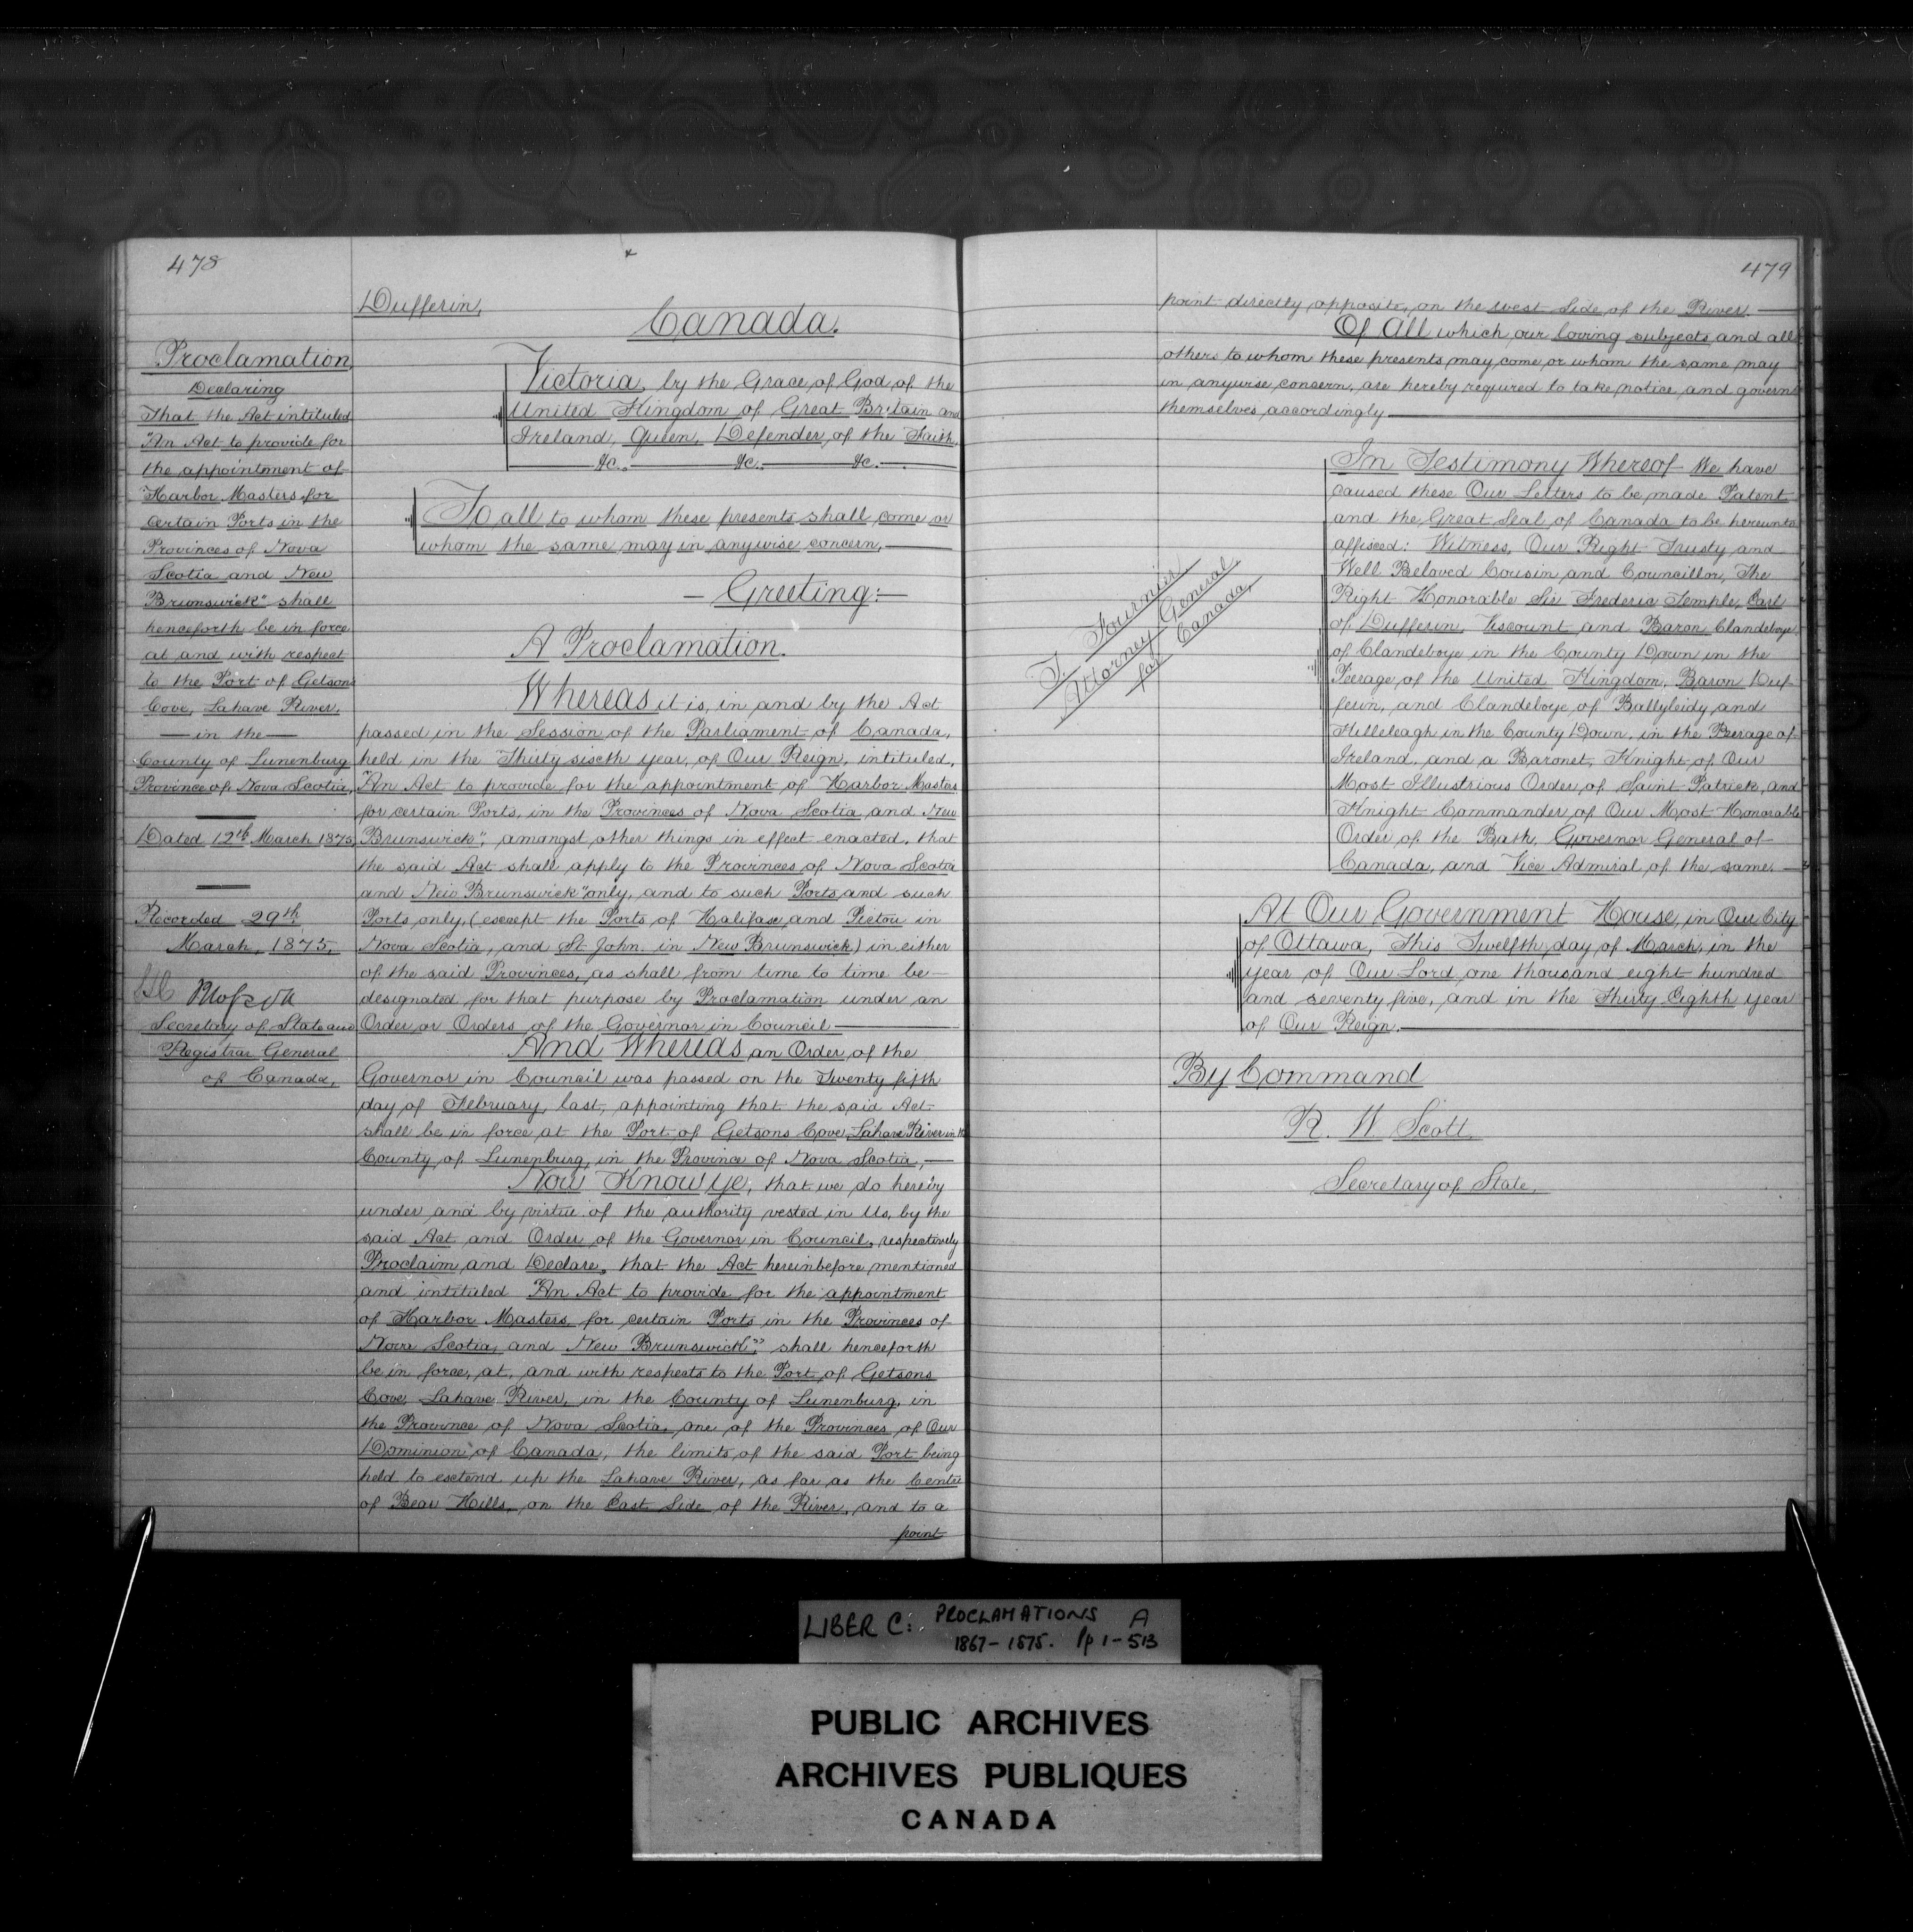 478
Dufferin,
Canada.
Proclamation,
Declaring
That the Act intituled
"An Act to provide for
the appointment of
Harbor Masters for
certain Ports in the
Provinces of Nova
Scotia and New
Brunswick" shall
henceforth be in force
at and with respect
to the Port of Getsons
Cove, Lahave River,
— in the —
County of Lunenburg
Province of Nova Scotia,
Dated 12th March 1875,
Recorded 29th
March, 1875,
Secretary of State and
Registrar General
of Canada,
Victoria, by the Grace of God, of the
United Kingdom of Great Britain and
Ireland, Queen, Defender of the Faith,
&c. &c. &c.
To all to whom these presents shall come or
whom the same may in anywise concern,
— Greeting:—
A Proclamation.
Whereas it is, in and by the Act
passed in the Session of the Parliament of Canada,
held in the Thirty sixth year, of Our Reign, intituled,
"An Act to provide for the appointment of Harbor Masters
for certain Ports, in the Provinces of Nova Scotia and New
Brunswick", amongst other things in effect enacted, that
the said Act shall apply to the Provinces of Nova Scotia
and New Brunswick "only, and to such Ports and such
Ports only, (except the Ports of Halifax and Pictou in
Nova Scotia, and St. John. in New Brunswick) in either
of the said Provinces, as shall from time to time be
designated for that purpose by Proclamation under an
Order or Orders of the Governor in Council
And Whereas an Order of the
Governor in Council was passed on the Twenty fifth
day of February last, appointing that the said Act
shall be in force at the Port of Getsons Cove, Lahave River in the
County of Lunenburg, in the Province of Nova Scotia,
Now Know Ye, that we do hereby
under and by virtue of the authority vested in Us, by the
said Act and Order of the Governor in Council, respectively
Proclaim and Declare, that the Act hereinbefore mentioned
and intituled "An Act to provide for the appointment
of Harbor Masters for certain Ports in the Provinces of
Nova Scotia, and New Brunswick", shall henceforth
be in force, at, and with respects to the Port of Getsons
Cove, Lahave River, in the County of Lunenburg, in
the Province of Nova Scotia, one of the Provinces of Our
Dominion of Canada, the limits of the said Port being
held to extend up the Lahave River, as far as the Center
of Bear Hills, on the East Side of the River, and to a
point
479
point directly opposite, on the west Side of the River.
Of All which our loving subjects and all
others to whom these presents may come or whom the same may
in anywise concern, are hereby required to take notice, and govern
themselves accordingly
T. Fournier,
Attorney General,
for Canada,
In Testimony Whereof We have
caused these Our Letters to be made Patent
and the Great Seal of Canada to be hereunto
affixed: Witness, Our Right Trusty and
Well Beloved Cousin and Councillor, The
Right Honorable Sir Frederic Temple, Earl
of Dufferin, Viscount and Baron Clandeboye,
of Clandeboye in the County Down in the
Peerage of the United Kingdom, Baron Duf-
ferin, and Clandeboye of Ballyleidy and
Killeleagh in the County Down, in the Peerage of
Ireland, and a Baronet, Knight of Our
Most Illustrious Order of Saint Patrick, and
Knight Commander of Our Most Honorable
Order of the Bath, Governor General of
Canada, and Vice Admiral of the same.
At Our Government House, in Our City
of Ottawa, This Twelfth day of March, in the
year of Our Lord one thousand eight hundred
and seventy five, and in the Thirty Eighth year
of Our Reign.
By Command
R. W. Scott,
Secretary of State,
LIBER C: PROCLAMATIONS A
1867-1875. Pp 1-513
PUBLIC ARCHIVES
ARCHIVES PUBLIQUES
CANADA